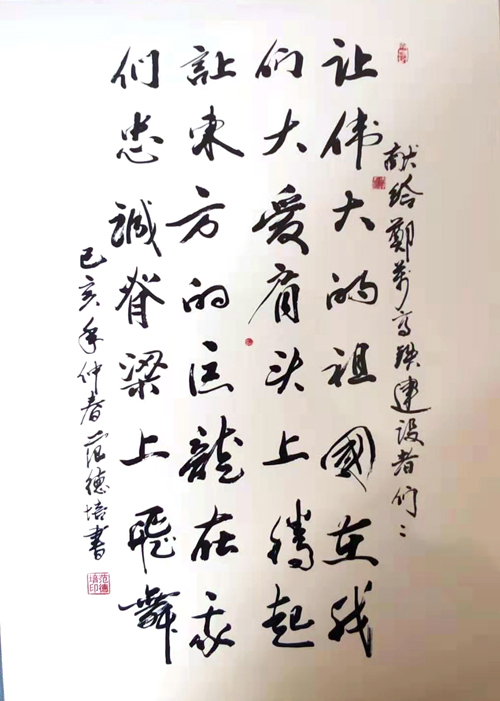 献给鄭万高铁建设者们：
让伟大的祖國在我
们大爱肩头上腾起
讓东方的巨龍在我
们忠诚脊梁上飛舞
己亥年仲春范德培書
范德培印